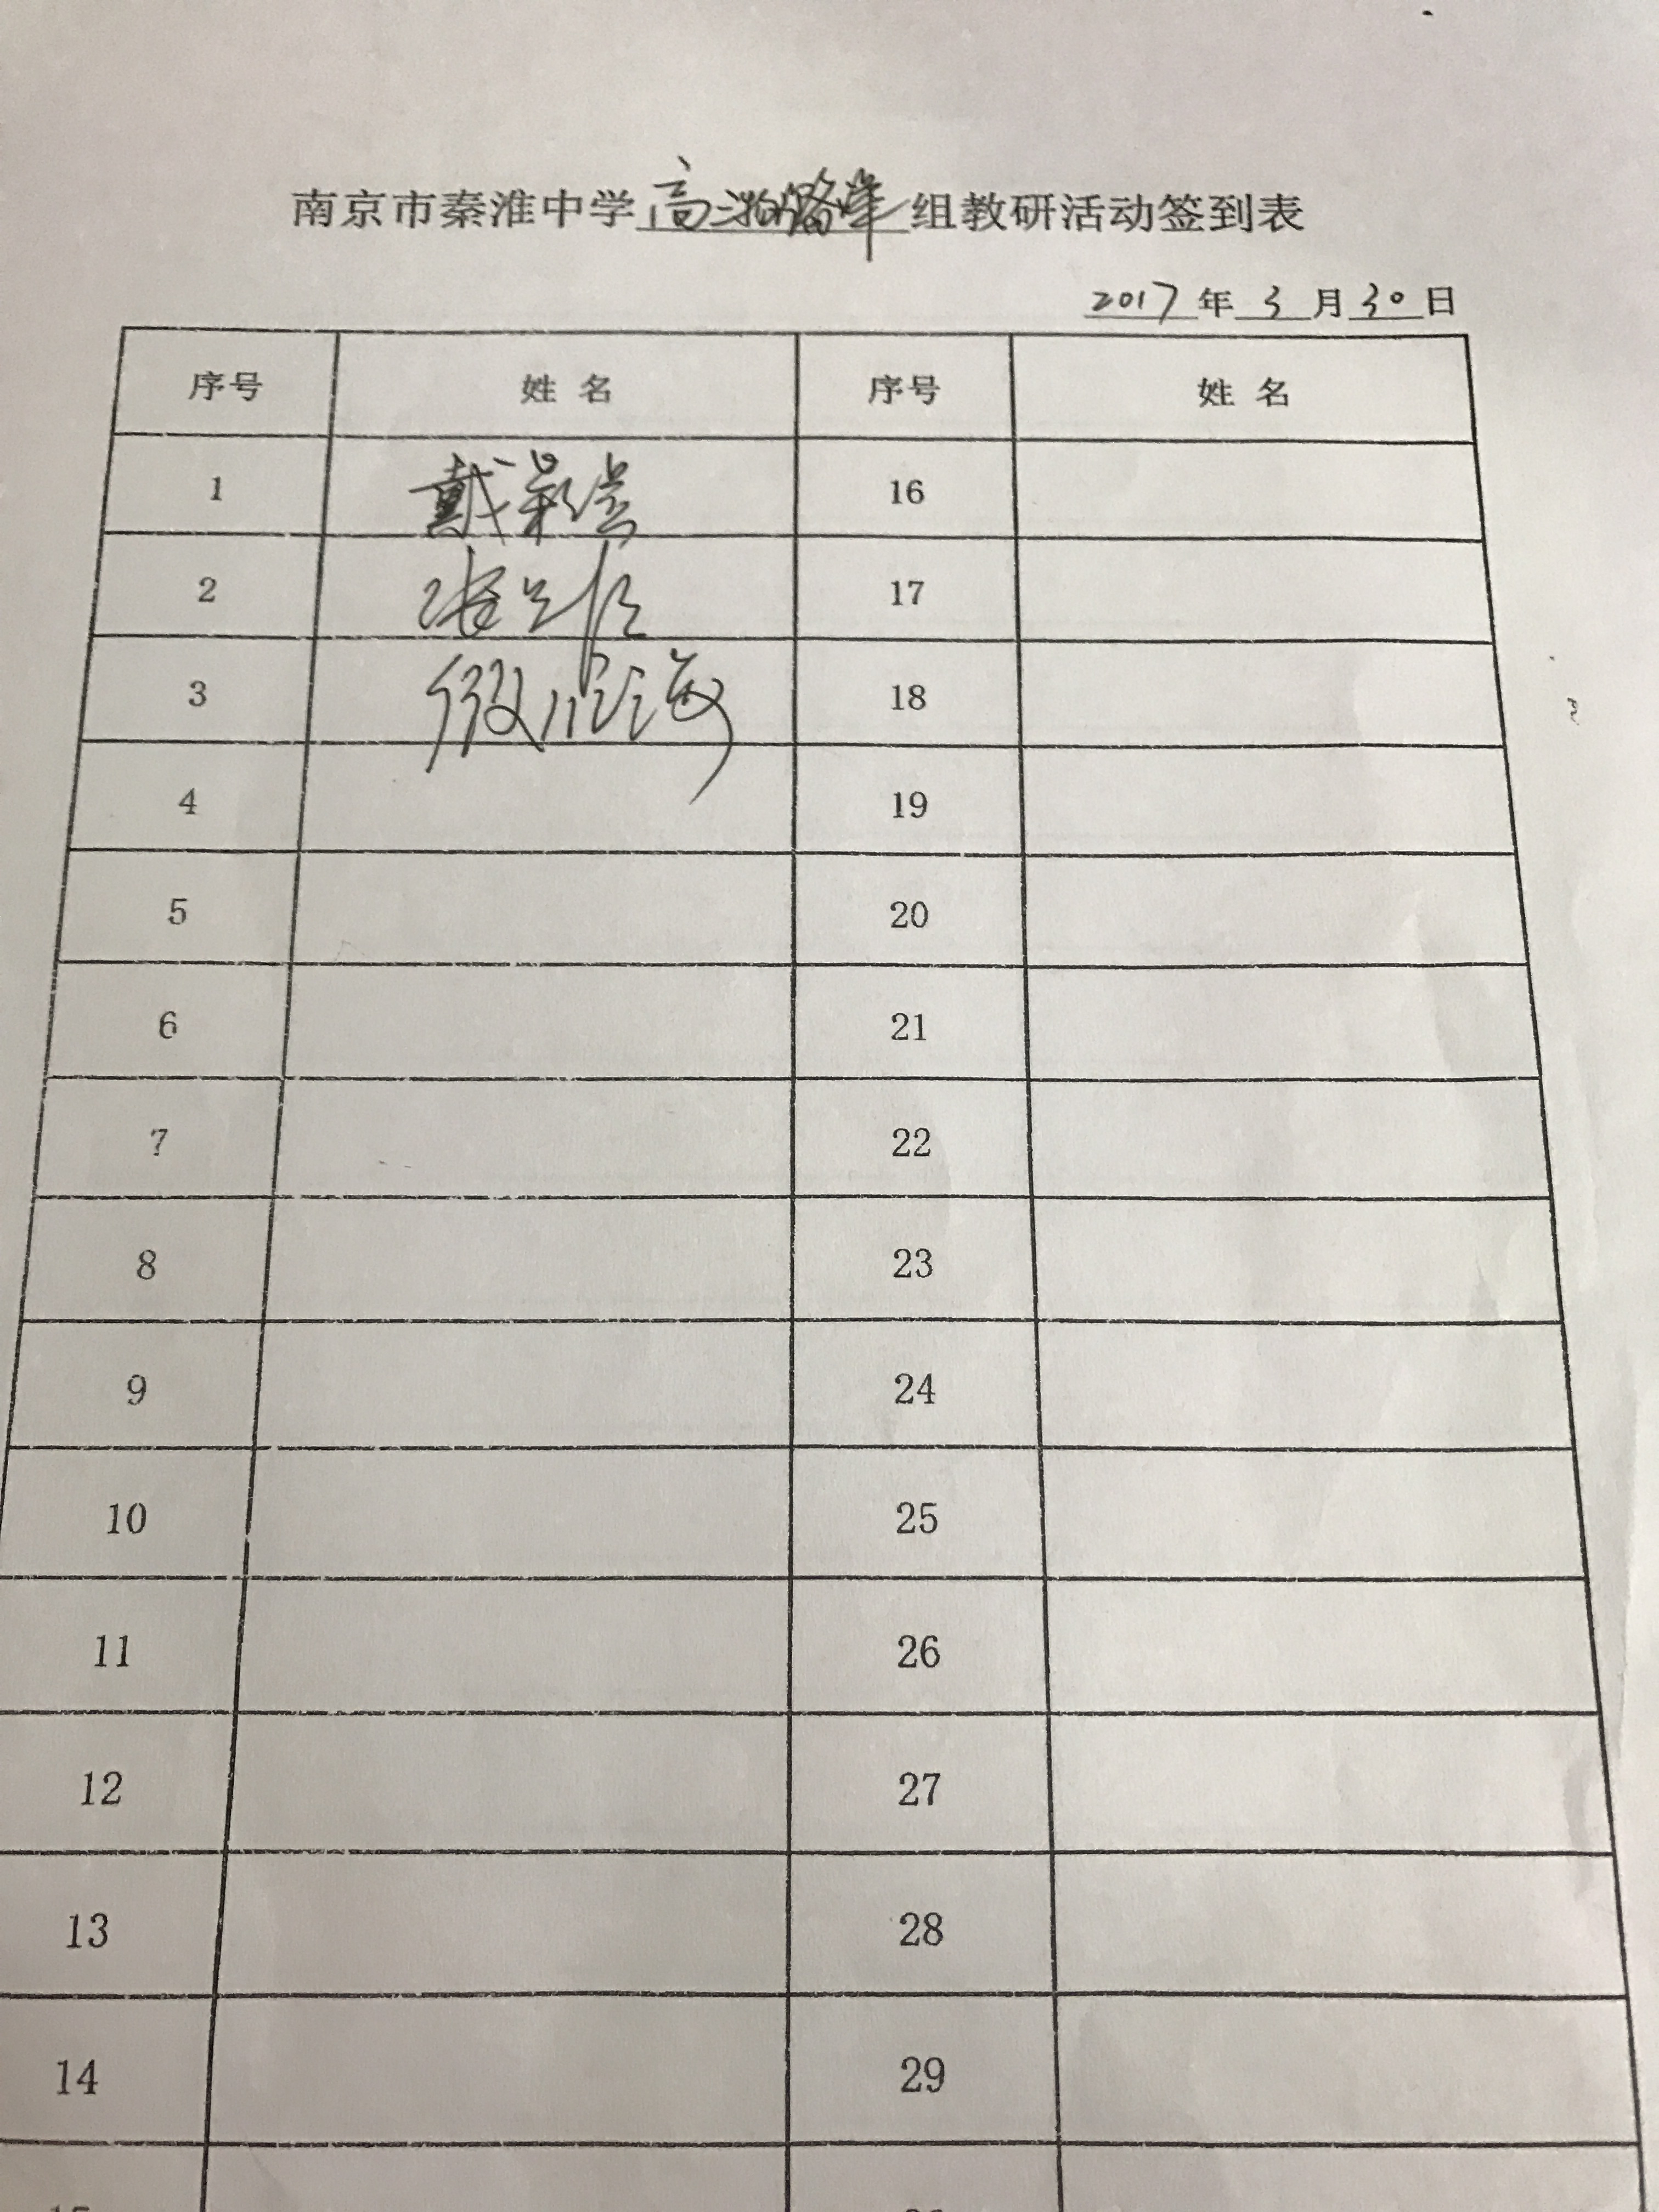 南京市秦淮中学高二物理备课组教研活动签到表
2017年3月30日
序号 姓名 序号 姓名
1 戴 16
2 张 17
3 18
4 19
5 20
6 21
7 22
8 23
9 24
10 25
11 26
12 27
13 28
14 29